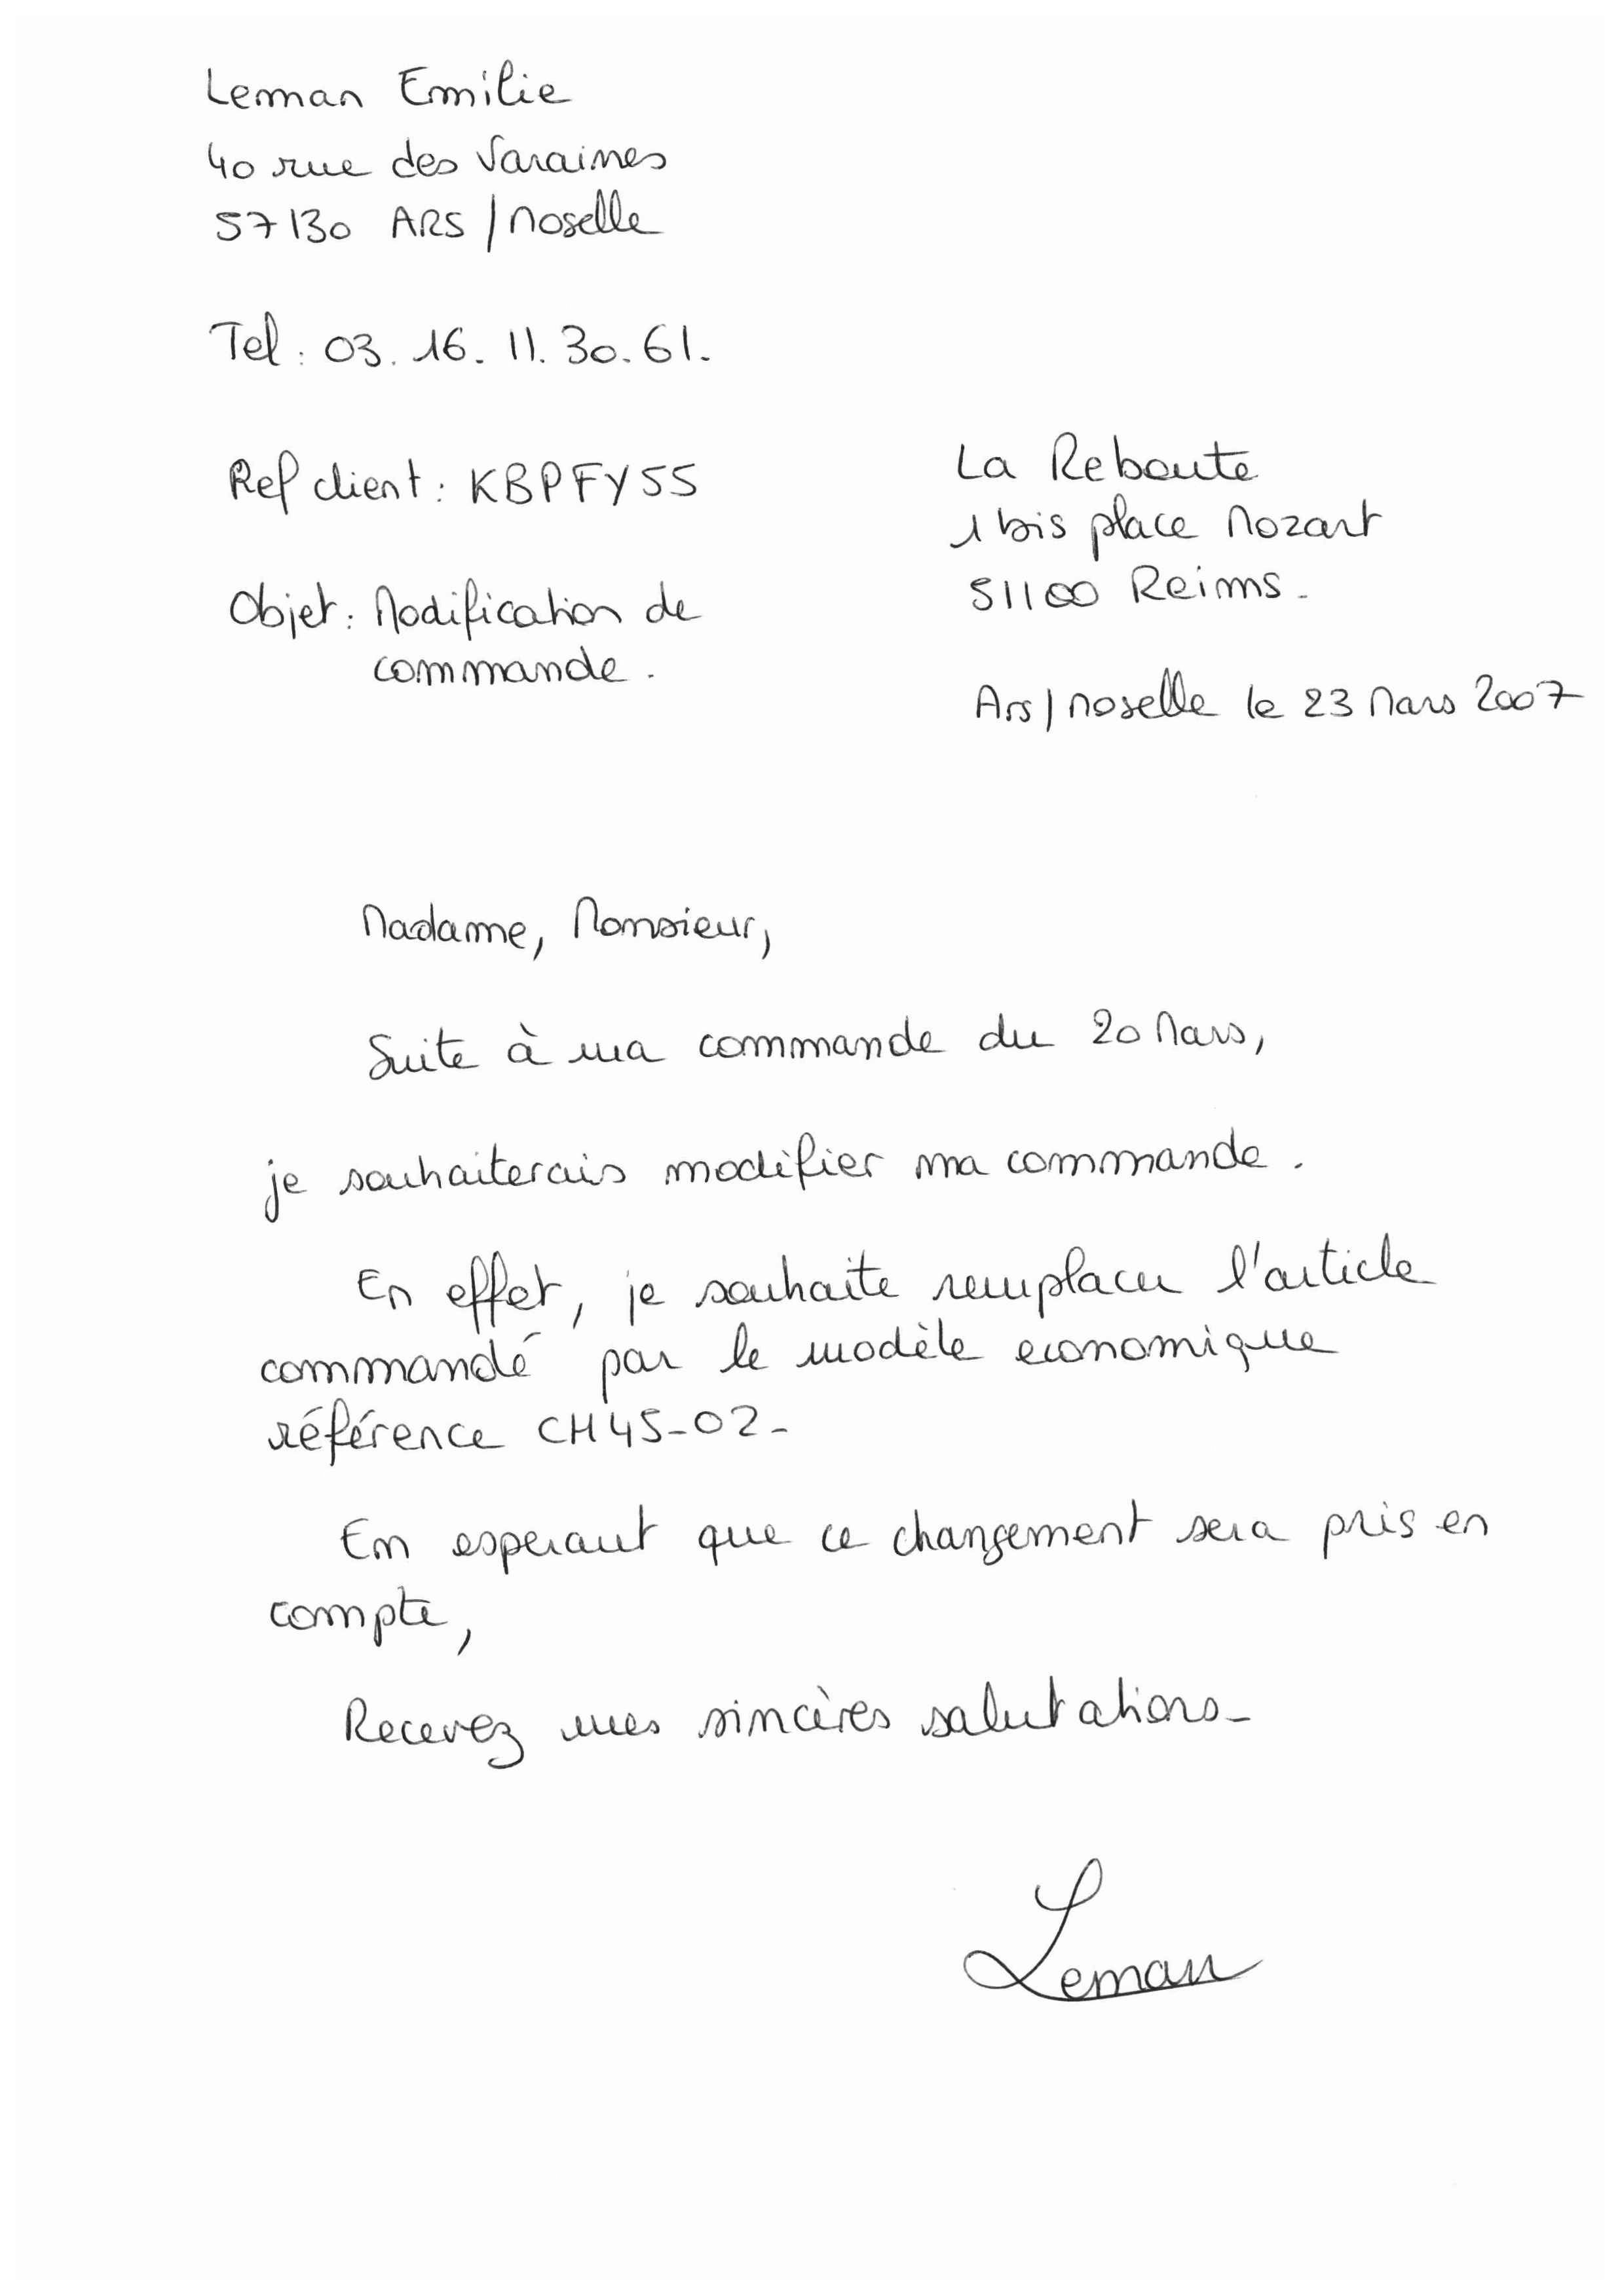 Leman Emilie
40 rue des Varaines
57130 ARS / Moselle
Tel : 03. 16. 11. 30. 61.
Ref client : KBPFY55
Objet : Modification de
commande.
La Reboute
1 bis place Mozart
51100 Reims.
Ars / Moselle le 23 Mars 2007
Madame, Monsieur,
Suite à ma commande du 20 Mars,
je souhaiterais modifier ma commande.
En effet, je souhaite remplacer l'article
commandé par le modèle economique
référence CH45-02-
En esperant que ce changement sera pris en
compte,
Recevez mes sincères salutations-
Leman